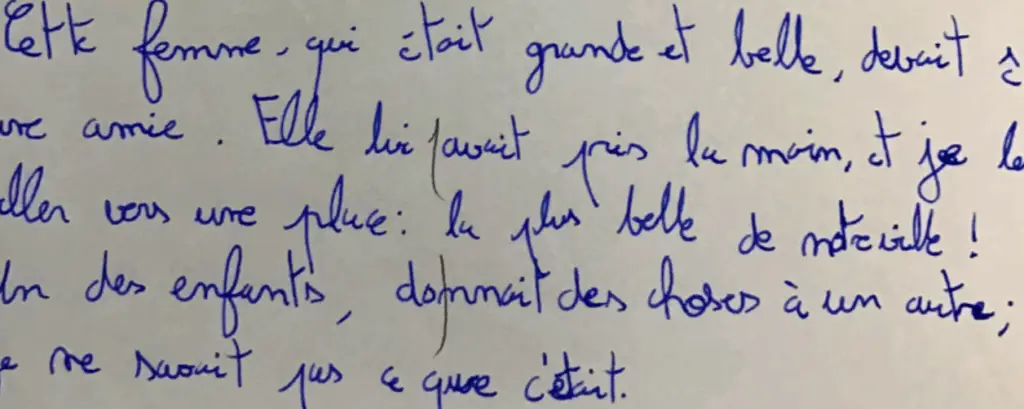 Cette femme, qui était grande et belle, devait ê
une amie. Elle lui avait pris la main, et je le
aller vers une place: la plus belle de notre ville !
Un des enfants, donnait des choses à un autre;
je ne savait pas ce que c'était.